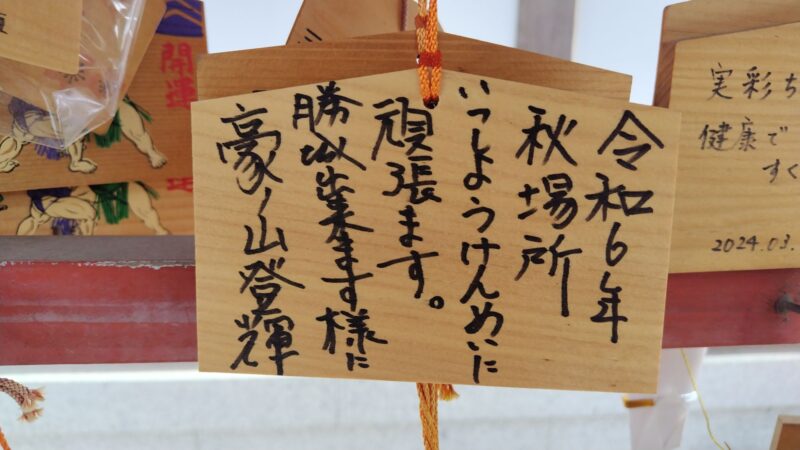 令和6年
秋場所
いっしょうけんめいに
頑張ます。
勝以出来ます様に
豪ノ山登輝
実彩ち
健康で
すく
2024.03.
開運